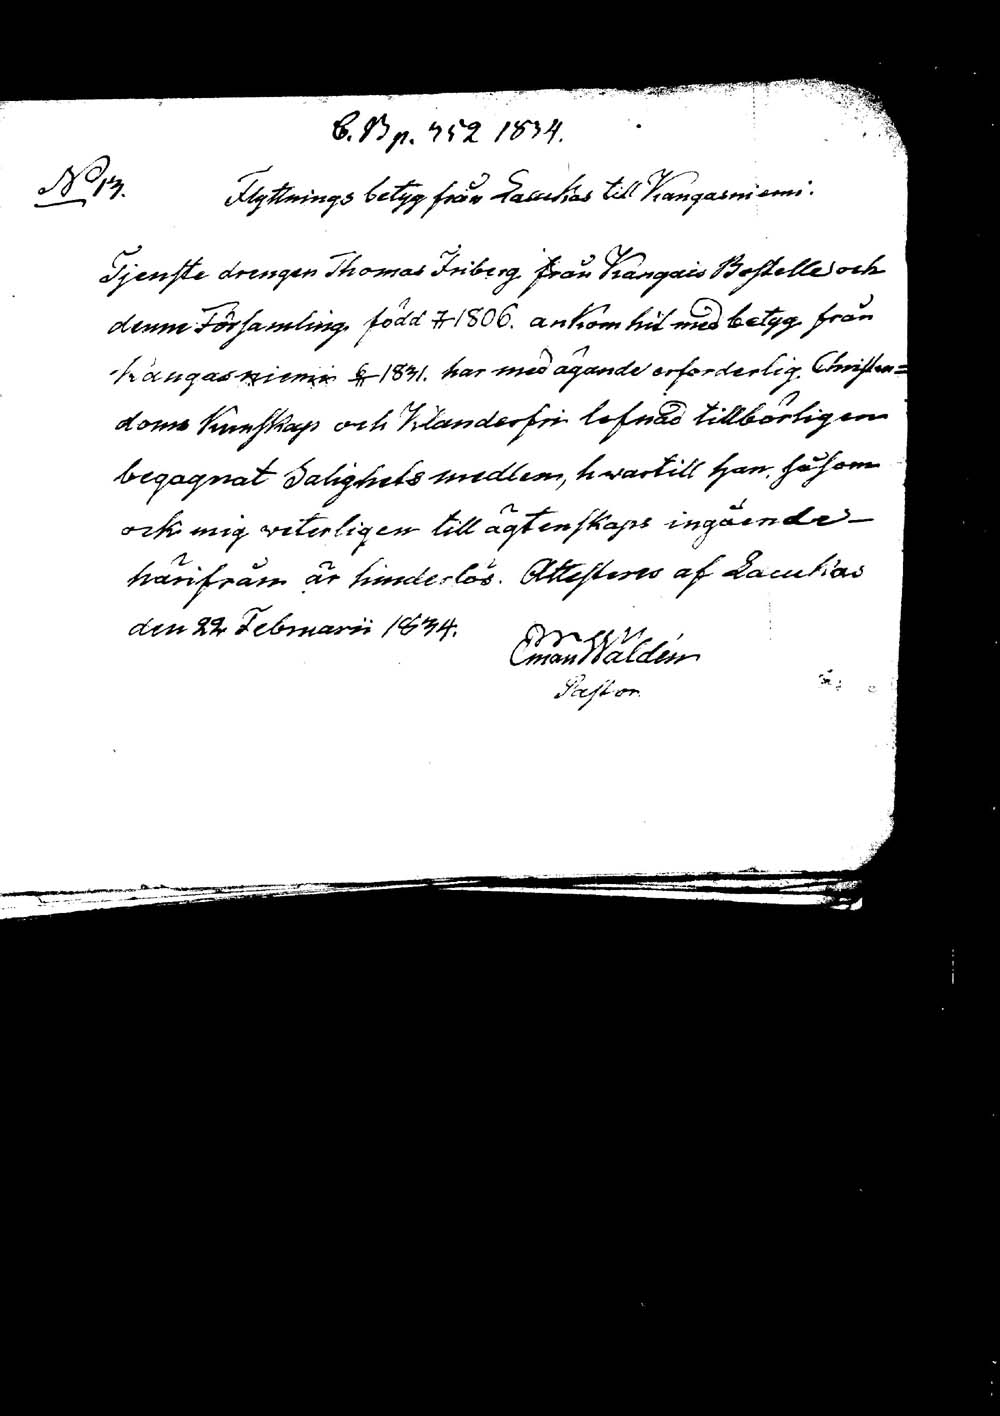 C. B p. 352 1834.
No 13.
Flyttnings betyg från Laukas till Kangasniemi.
Tjenste drengen Thomas Friberg från Kangais Bostelle och
denne Församling, född 1806. ankom hit med betyg från
Kangasniemi 1831. har med ägande erforderlig Christen=
doms Kunskap och Klanderfri lefnad tillbörligen
begagnat Salighets medlem, hwartill han, såsom
ock mig veterligen till ägtenskaps ingående
härifrån är hinderlös. Attesteres af Laukas
den 22 Februarii 1834.
Eman Waldén
Pastor.